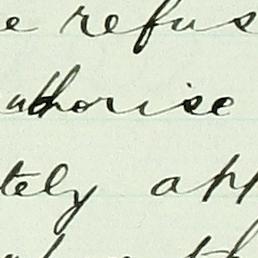 e refus
uthorise
tely app